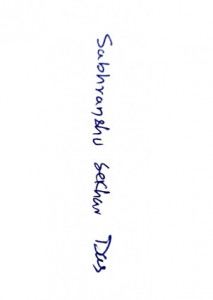 Subhranshu Sekhar Das